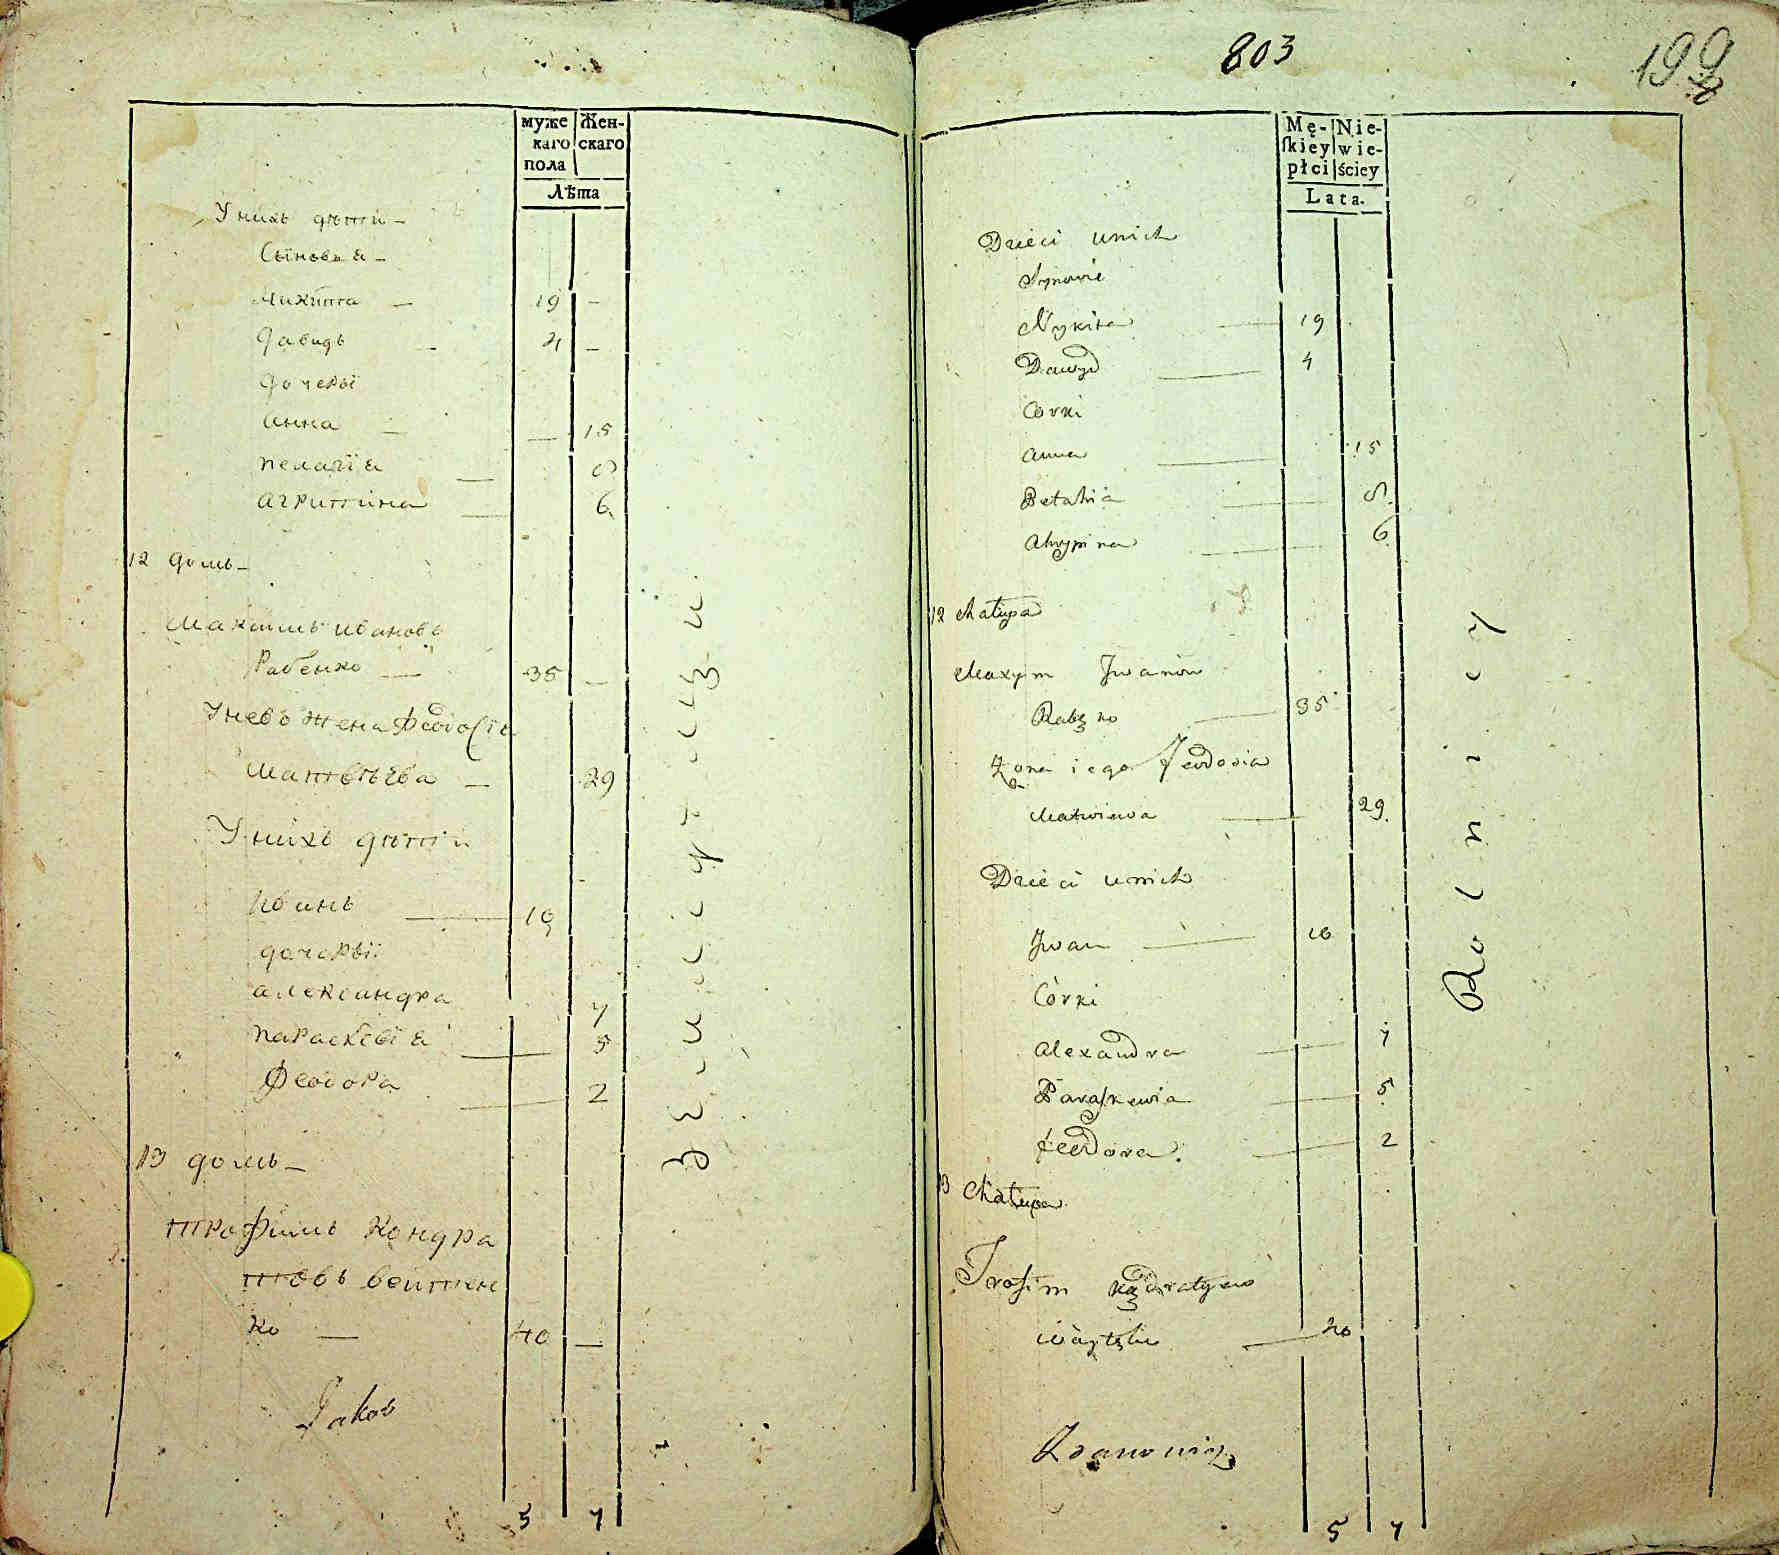 муже
каго
пола
Жен-
скаго
Лѣта
У нихъ дѣти -
Сыновья -
Микита - 19 -
Давидъ - 4 -
дочери
Анна - - 15
Пелагія - 8
Агрипина - 6
12 домъ -
Максимъ Ивановъ
Рабенко - 35 -
У него жена Феодосія
Матвѣева - 29
У нихъ дѣти
Иванъ - 10
дочери
Александра 7
Параскевія - 5
Феодора - 2
13 домъ -
Трофимъ Кондра
товъ Войтен
ко - 40 -
Земледѣльцы
Jakob
5 7
803
199
Mę-
skiey
płci
Nie-
wie-
ściey
Lata.
Dzieci unich
Synowie
Nykita - 19
Dawyd - 4
Corki
Anna - 15
Pelahia - 8
Ahrypina - 6
12 Chałupa
Maxym Jwanow
Rabęko - 35
Żona iego Feodosia
Matwiewa - 29
Dzieci unich
Jwan - 10
Córki
Alexandra - 7
Paraskewia - 5
Feodora - 2
13 Chałupa
Trofim Kądratyew
- 40
Rolnicy
5 7